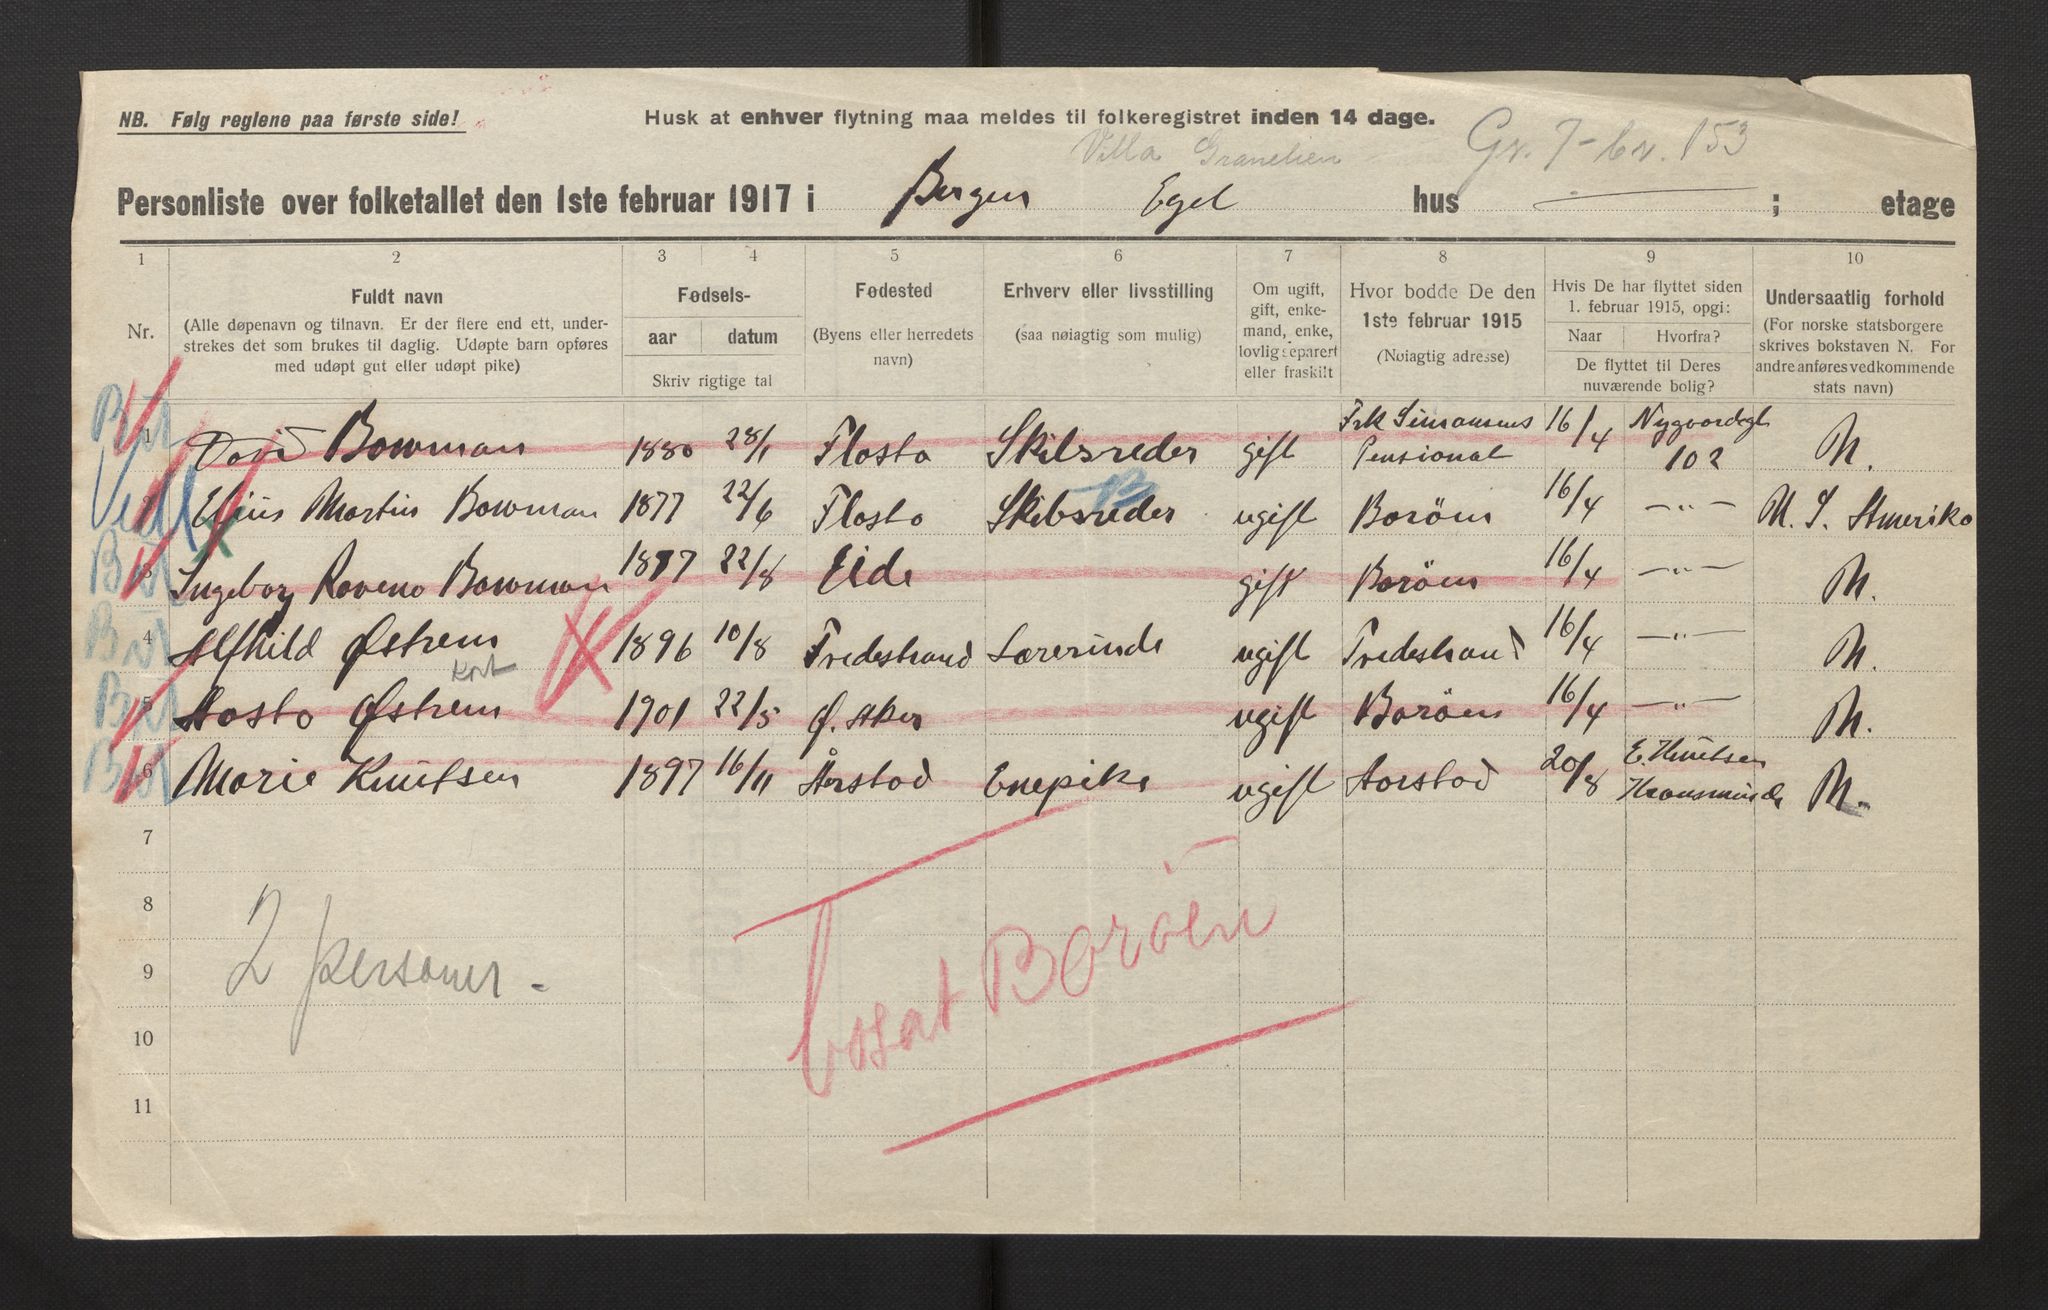 NB. Følg reglene paa første side!
Husk at enhver flytning maa meldes til folkeregistret inden 14 dage.
Villa Granelien Gr. 7 - br. 153
Personliste over folketallet den 1ste februar 1917 i Bergen Eget hus ; etage
1 2 3 4 5 6 7 8 9 10
Nr.
Fuldt navn
(Alle døpenavn og tilnavn. Er der flere end ett, under-
strekes det som brukes til daglig. Udøpte barn opføres
med udøpt gut eller udøpt pike)
Fødsels-
aar datum
Skriv rigtige tal
Fødested
(Byens eller herredets
navn)
Erhverv eller livsstilling
(saa nøiagtig som mulig)
Om ugift,
gift, enke-
mand, enke,
lovlig separert
eller fraskilt
Hvor bodde De den
1ste februar 1915
(Nøiagtig adresse)
Hvis De har flyttet siden
1. februar 1915, opgi:
Naar Hvorfra?
De flyttet til Deres
nuværende bolig?
Undersaatlig forhold
(For norske statsborgere
skrives bokstaven N. For
andre anføres vedkommende
stats navn)
1 Bowman 1880 28/1 Flosta Skibsreder gift Frk Simonsens Pensionat 16/4 Nygaardsgt 102 N.
2 Martin Bowman 1877 22/6 Flosta Skibsreder B ugift Borøen 16/4 -"- N. S. Amerika
3 Ingeborg Bowman 1887 22/8 Eide gift Borøen 16/4 -"- N.
4 Alfhild Østrem 1896 10/8 Tvedestrand Lærerinde ugift Tvedestrand 16/4 -"- N.
kort
5 Aasta Østrem 1901 22/5 Ø. Aker ugift Borøen 16/4 -"- N.
6 Marie Knutsen 1897 16/11 Årstad Enepike ugift Aarstad 20/8 E. Knutsen N.
7
8
9
10
11
2 personer -
bosat Borøen